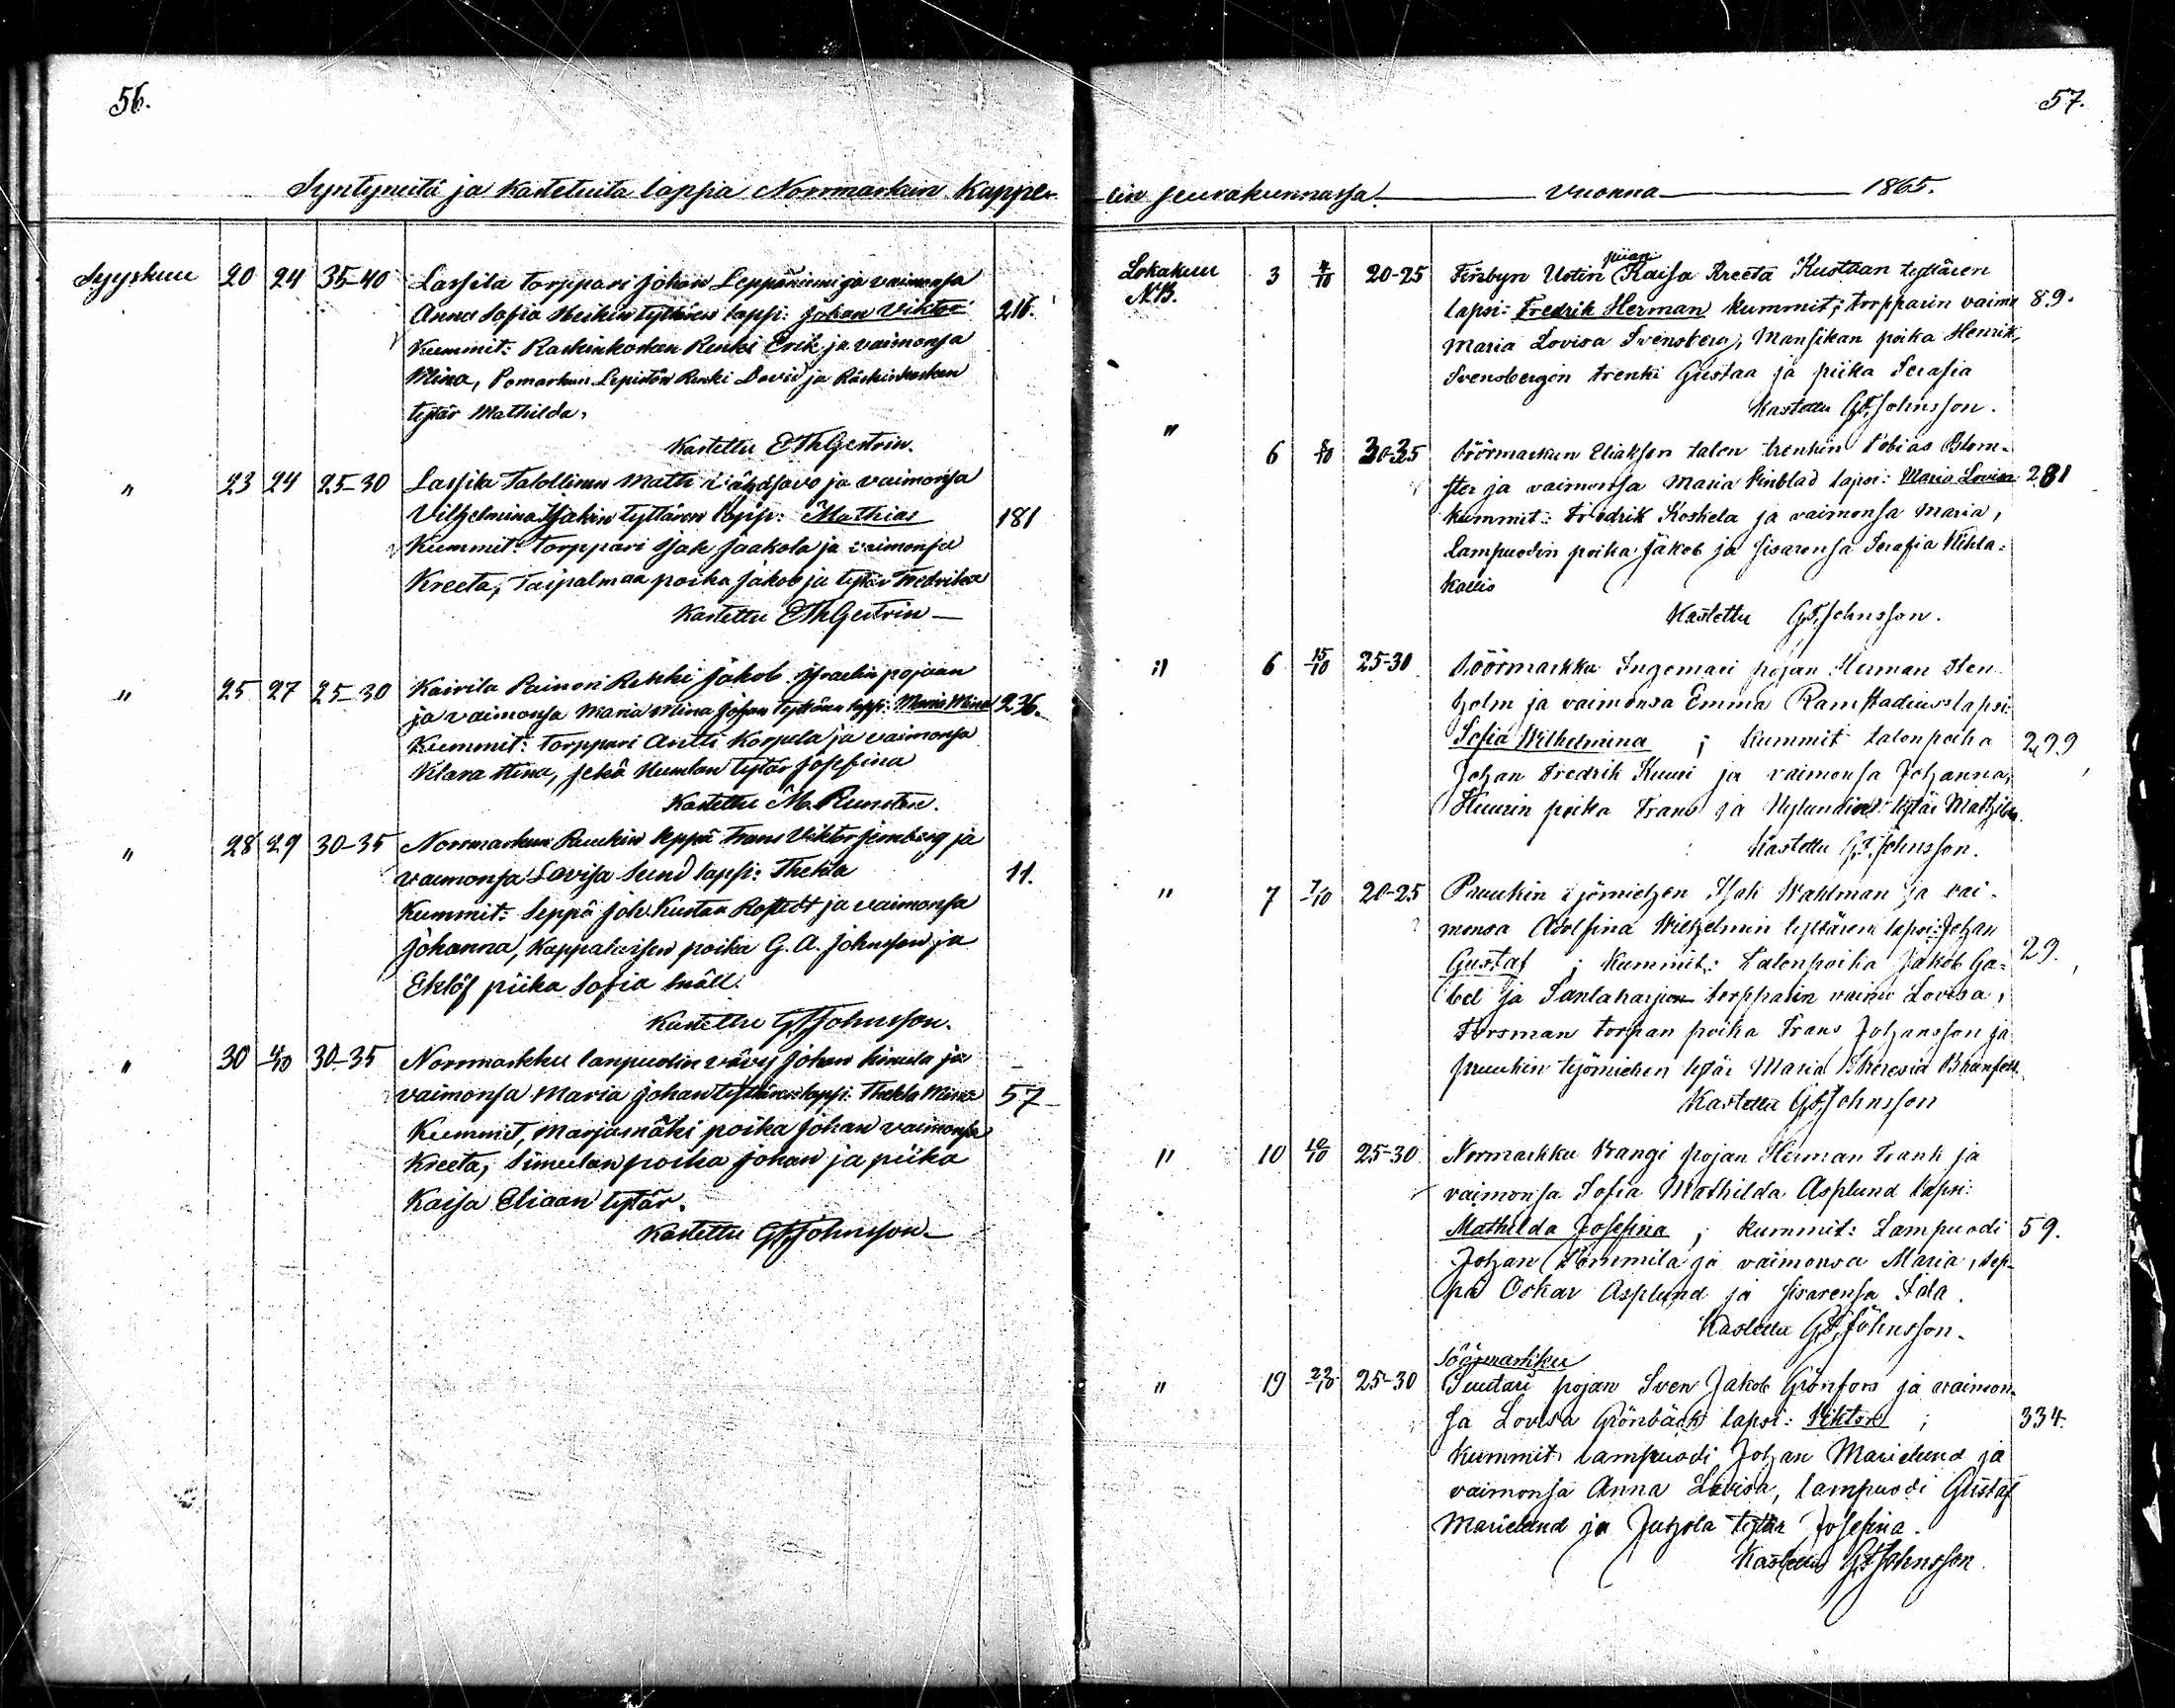 56.
Syntyneitä ja kastetuita lapsia Norrmarkun Kappe-
Syyskuu 20 24 35-40 Lassila torppari Johan Leppäniemi ja vaimonsa
Anna Sofia Heikin tyttären lapsi: Johan Viktor 216.
Kummit: Raskinkosken Renki Erik ja vaimonsa
Mina, Pomarkun Lepistön Renki David ja Räskinkosken
tytär Mathilda,
Kastettu E Th Gestrin.
" 23 24 25-30 Lassila Talollinen Matti ja vaimonsa
Vilhelmina Isakin tyttären laps: Mathias 181
Kummit: torppari Isak Jaakola ja vaimonsa
Kreeta, Taipalmaa poika Jakob ja tytär Fredrika
Kastettu E Th Gestrin —
" 25 27 25-30 Kairila Painori Renki Jakob Israelin pojaan
ja vaimonsa Maria Mina Johan tyttären laps: Maria Mina 236.
Kummit: torppari Antti Korpela ja vaimonsa
Klara Stina, sekä tytär Josefina
Kastettu M. Runsten.
" 28 29 30-35 Norrmarkun Ruukin Seppä Frans Viktor Jernberg ja
vaimonsa Lovisa Sund lapsi: Thekla 11.
Kummit: Seppä Joh. Kustaa Rostedt ja vaimonsa
Johanna, Kappalaisen poika G. A. Johnsson ja
Eklöf piika Sofia Snäll.
Kastettu G F Johnsson.
" 30 4/10 30-35 Norrmarkku lanpuodin vävy Johan Simula ja
vaimonsa Maria Johan tyttären laps: Thekla Mina 57
Kummit, Marjamäki poika Johan vaimonsa
Kreeta, Simulan poika Johan ja piika
Kaisa Eliaan tytär.
Kastettu G F Johnsson —
57.
lin seurakunnassa vuonna 1865.
piian
Lokakuu 3 4/10 20-25 Finbyn Ustin Kaisa Kreeta Kustaan tyttären
NB. lapsi: Fredrik Herman kummit; torpparin vaimo 89.
Maria Lovisa Svensberg, Mansikan poika Henrik,
Svensbergin trenki Gustaa ja piika Serafia
Kastettu G F Johnsson.
" 6 8/10 30-35 Söörmarkun Eliakson talon trenkin Tobias Blom-
ster ja vaimonsa Maria Sinblad lapsi: Maria Lovisa 281
kummit: Fredrik Koskela ja vaimonsa Maria,
Lampuodin poika Jakob ja sisarensa Serafia Vihla-
kallio
Kastettu G F Johnsson.
" 6 15/10 25-30 Söörmarkku Ingemari pojan Herman Sten-
holm ja vaimonsa Emma Ramstadius lapsi:
Sofia Wilhelmina ; kummit talonpoika 299
Johan Fredrik Kuuri ja vaimonsa Johanna,
Kuurin poika Frans ja Nylundin tytär Mathilda.
Kastettu G F Johnsson.
" 7 7/10 20-25 Pruukin työmiehen Isak Wahlman ja vai-
monsa Adolfina Wilhelmin tyttären lapsi: Johan
Gustaf ; Kummit: Talonpoika Jakob Ga- 29.
bel ja Santaharjun torpparin vaimo Lovisa,
Forsman torpan poika Frans Johansson ja
pruukin työmiehen tytär Maria Theresia
Kastettu G F Johnsson
" 10 10/10 25-30 Normarkku Prangi pojan Herman Frank ja
vaimonsa Sofia Mathilda Asplund lapsi:
Mathilda Josefina ; kummit: Lampuodi 59.
Johan Tommila ja vaimonsa Maria, sep-
pä Oskar Asplund ja sisarensa Ida.
Kastettu G F Johnsson.
Söörmarkku
" 19 22/10 25-30 Suutari pojan Sven Jakob Grönfors ja vaimon-
sa Lovisa Grönbäck lapsi: Viktor ; 334.
Kummit lampuodi Johan Marielund ja
vaimonsa Anna Lovisa, lampuodi Gustaf
Marielund ja Juhola tytär Josefina.
Kastettu G F Johnsson.